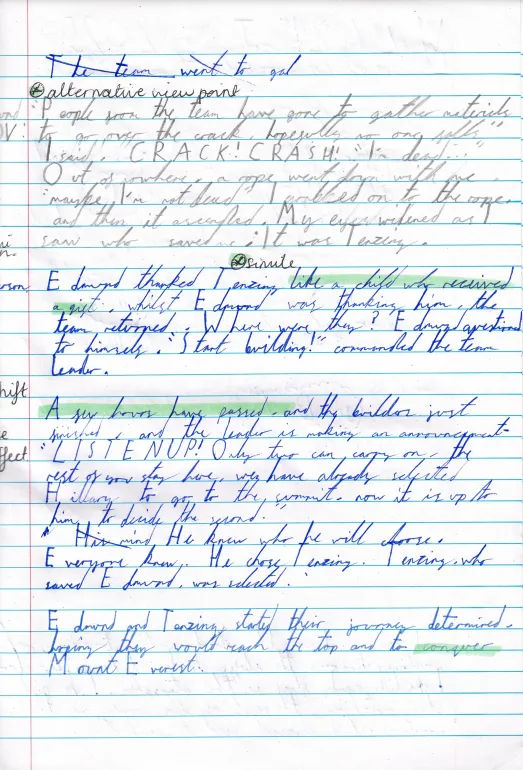 The team went to gal
alternative view point
"People from the team have gone to gather materials
to go over the crack hopefully no one falls"
I said. "CRACK! CRASH! "I'm dead..."
Out of nowhere, a rope went down with me.
"maybe I'm not dead" I grabbed on to the rope
and then it ascended. My eyes widened as I
saw who saved me; It was Tenzing.
simile
Edmund thanked Tenzing like a child who received
a gift. whilst Edmund was thanking him, the
team returned. Where were they? Edmund questioned
to himself. "Start building!" commanded the team
leader.
hift
A few hours have passed, and the builders just
finished, and the leader is making an announcement-
ffect
"LISTEN UP! Only two can carry on, the
rest of you stay here, we have already selected
Hillary to go to the summit. now it is up to
him to decide the second."
His mind, He knew who he will choose.
Everyone knew. He chose Tenzing. Tenzing, who
saved Edmund, was selected.
Edmund and Tenzing, started their journey determined,
hoping they would reach the top and to conquer
Mount Everest.